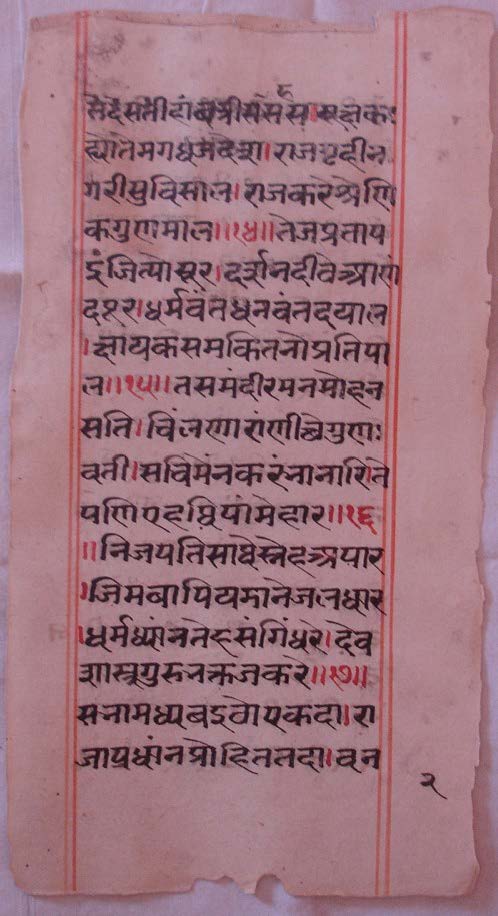 तेदेसतीहांबत्रीसंसस।सहजक
ह्योतेमगधजदेश।राजगृहीन
गरीसुविसाल।राजकरेश्रेणि
कगुणमाल॥१४॥तेजप्रताप
इंजित्योसूर।दर्शनदीवेआणं
दपूर।धर्मवंतधनवंतदयाल
।क्षायकसमकितनोप्रतिपा
ल॥१५॥तसमंदीरमनमोहन
सति।चिंलणारांणीछेगुण
वती।सविमंनकरंनानारिते
पणिएहछियांमेहार॥१६
॥निजपतिसाथेस्नेहअपार
।जिमबापियमानेजलधार
।धर्मध्यांनतेहसंगिंधरे।देव
शास्त्रगुरुनक्तजकरे॥१७॥
सनामध्यबइठोएकदा।रा
जाप्रधांनप्रोहिततदा।वन
२